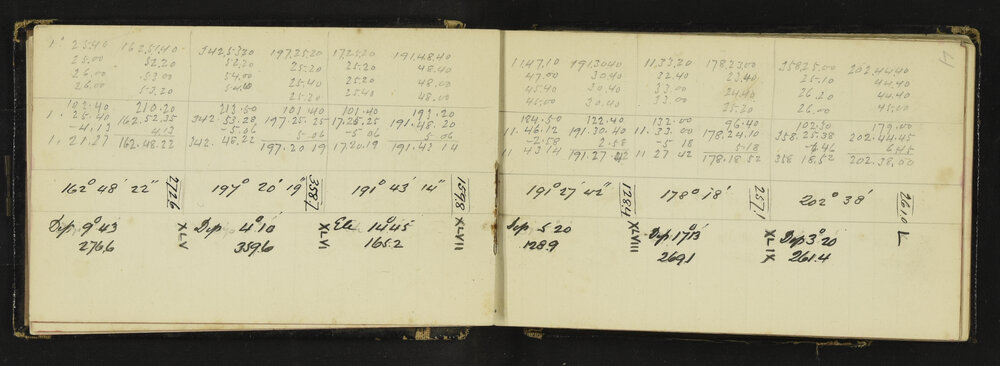 1° 25.40 162.51.40 342.53.20 197.25.20 17.25.20 191.48.40
25.00 52.20 52.20 25.20 25.20 48.40
26.00 53.00 54.00 25.40 25.20 48.00
26.00 53.20 25.20 25.40 48.00
102.40 210.20 213.50 101.40 101.40 193.20
1. 25.40 162.52.35 342 53.28 197.25.25 17.25.25 191.48.20
-4.13 4.13 -5.06 5.06 -5 06 5-06
1. 21.27 162.48.22 342.48.22 197.20 19 17.20.19 191.43 14
162° 48' 22" 2726 197° 20' 19" 3587 191° 43' 14" 1598
Dip 9° 43 XLV Dip 4° 10' XLVI Ele 14° 45 XLVII
276.6 359.6 165.2
4
11 47.10 191.30.40 11.33.20 178.23.00 358.25.00 202.44.40
47.00 30.40 32.40 23.40 25-10 44.40
45.40 30.40 33.00 24.40 26.20 44.40
45.00 30.40 33.00 25.20 26.00 45.00
184.50 122.40 132.00 96.40 102.30 179.00
11. 46.12 191.30.40 11.33.00 178.24.10 358.25.38 202.44.45
-2.58 2.58 -5 18 5-18 6.45
11 43 14 191.27.42 11 27 42 178.18.52 358 18.52 202.38.00
191° 27' 42" 1284 178° 18' 2571 202° 38' 2610
Dip 5 20 XLVIII Dip 17° 13' XLIX Dip 3° 20' L
128.9 269.1 261.4